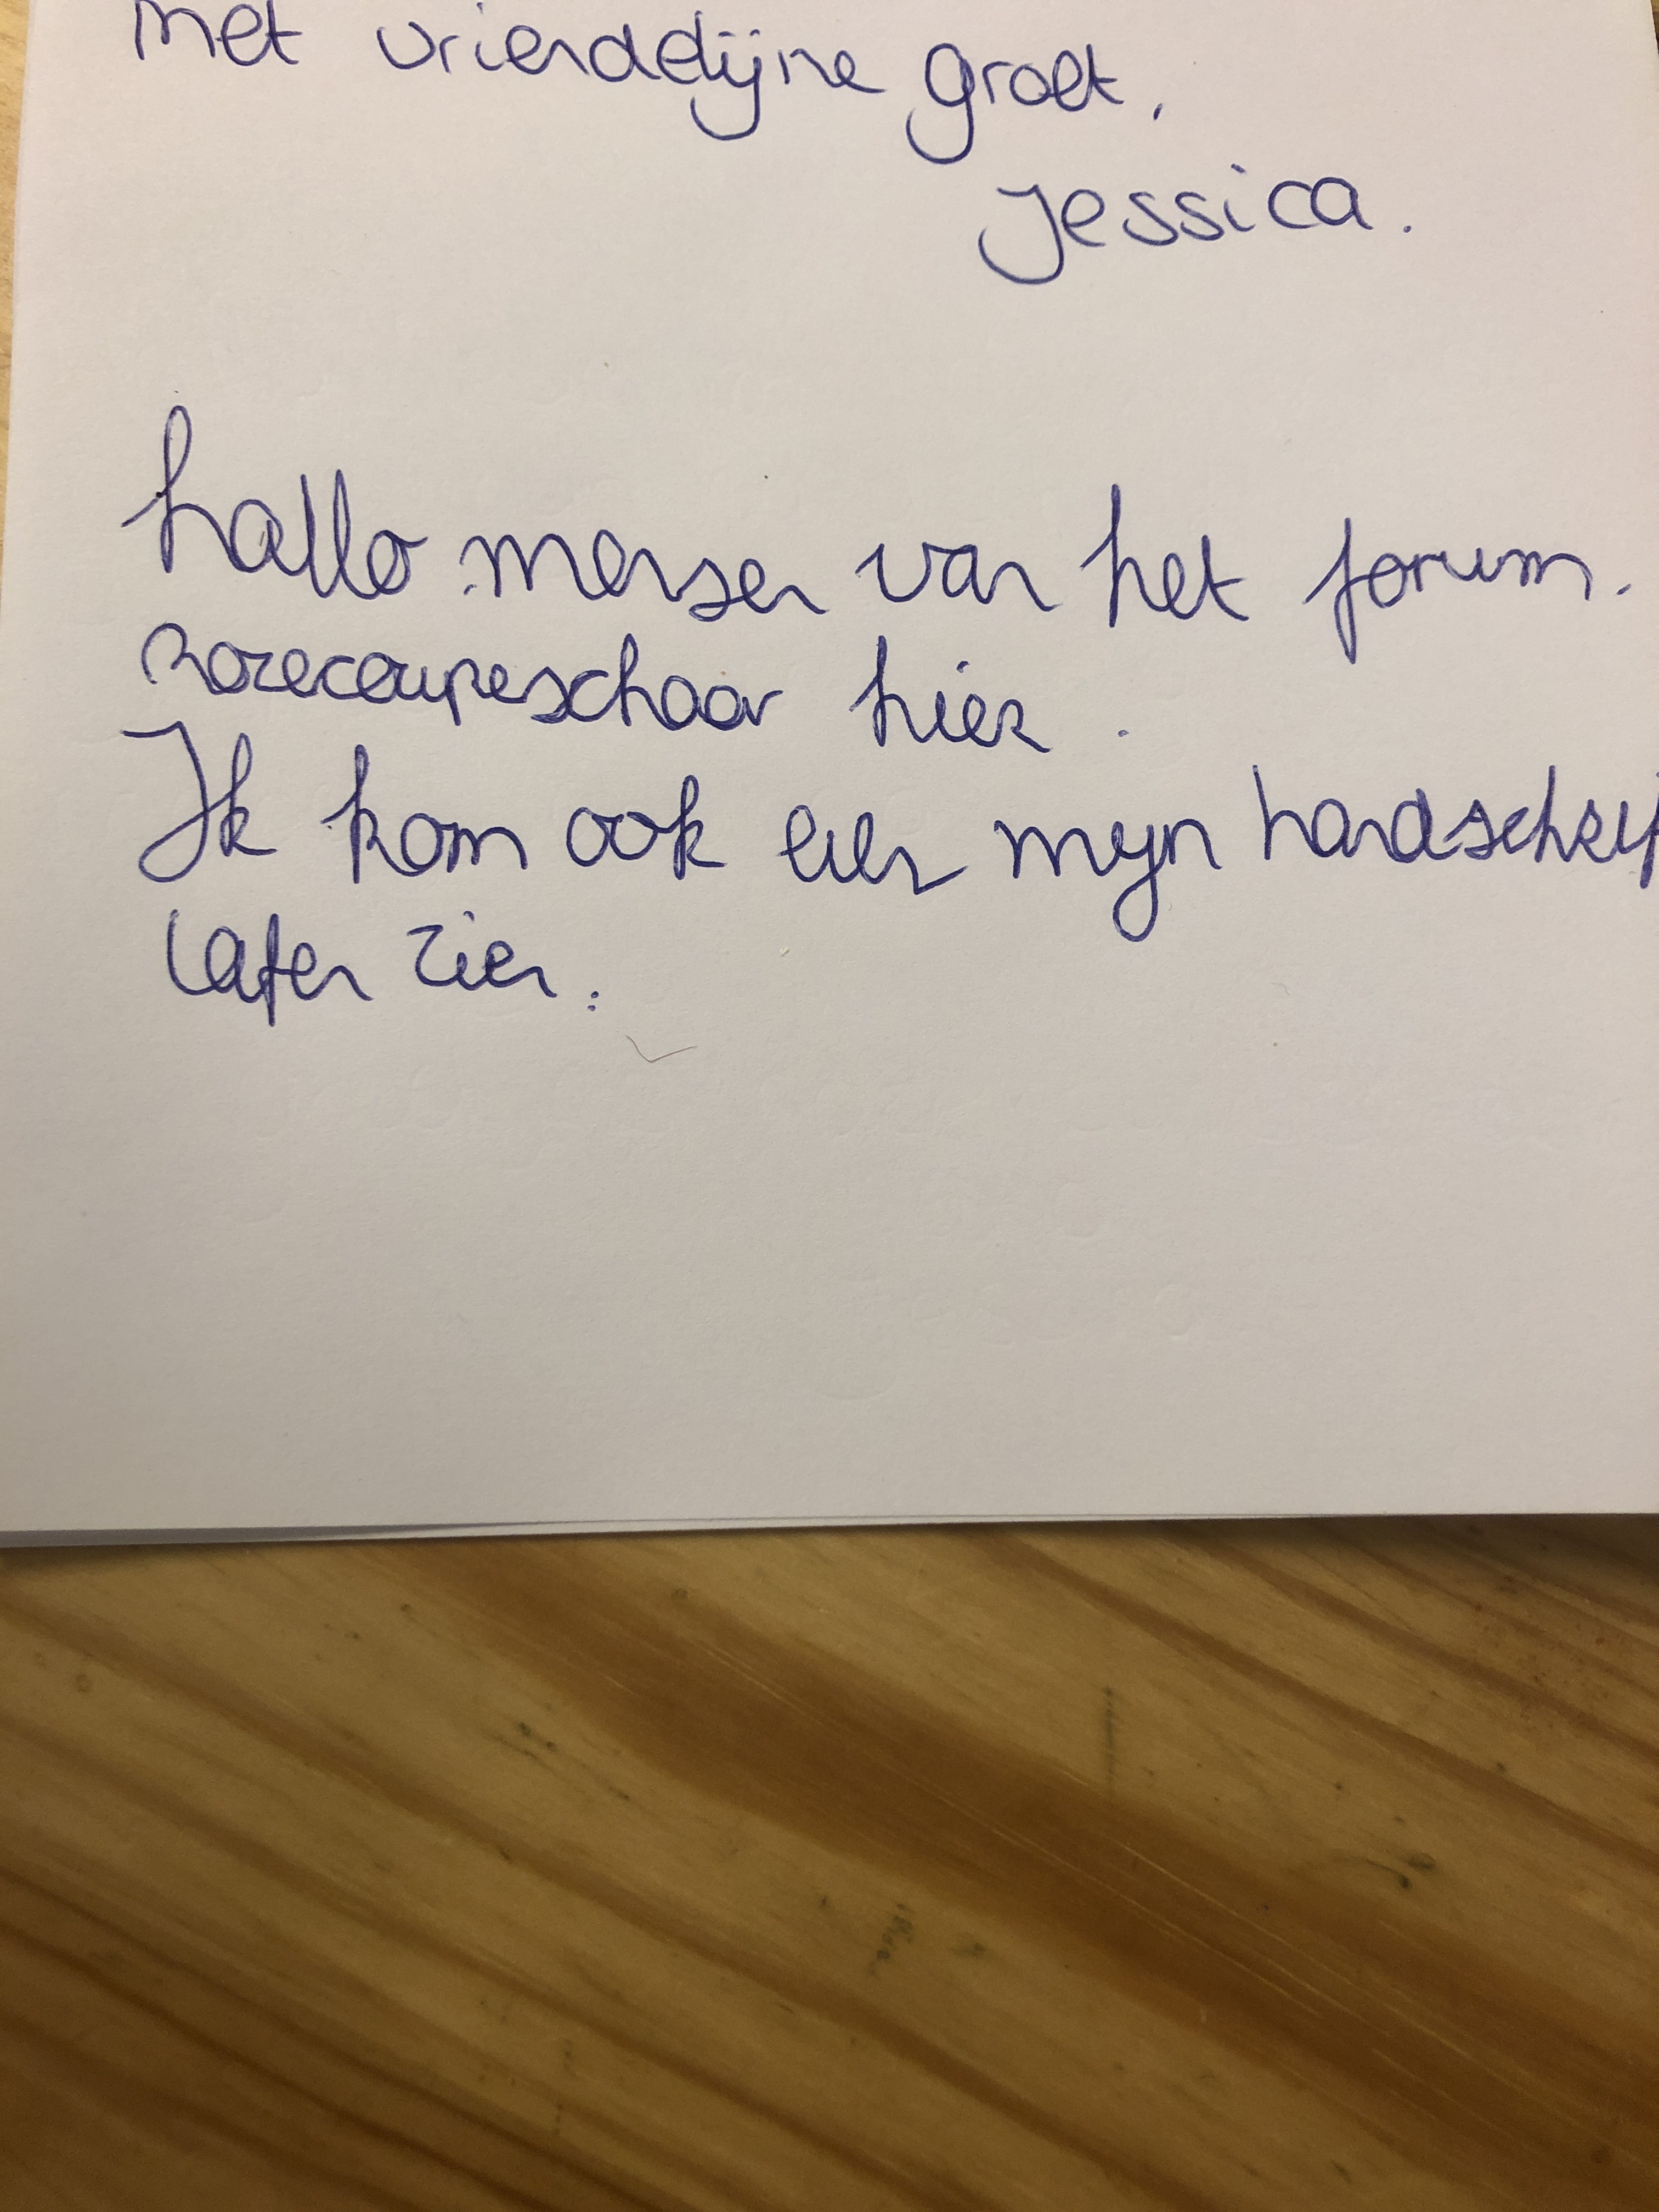 met vriendelijne groet,
Jessica.
hallo mensen van het forum.
Rozecoupeschaar hier.
Ik kom ook even mijn handschrif
laten zien.